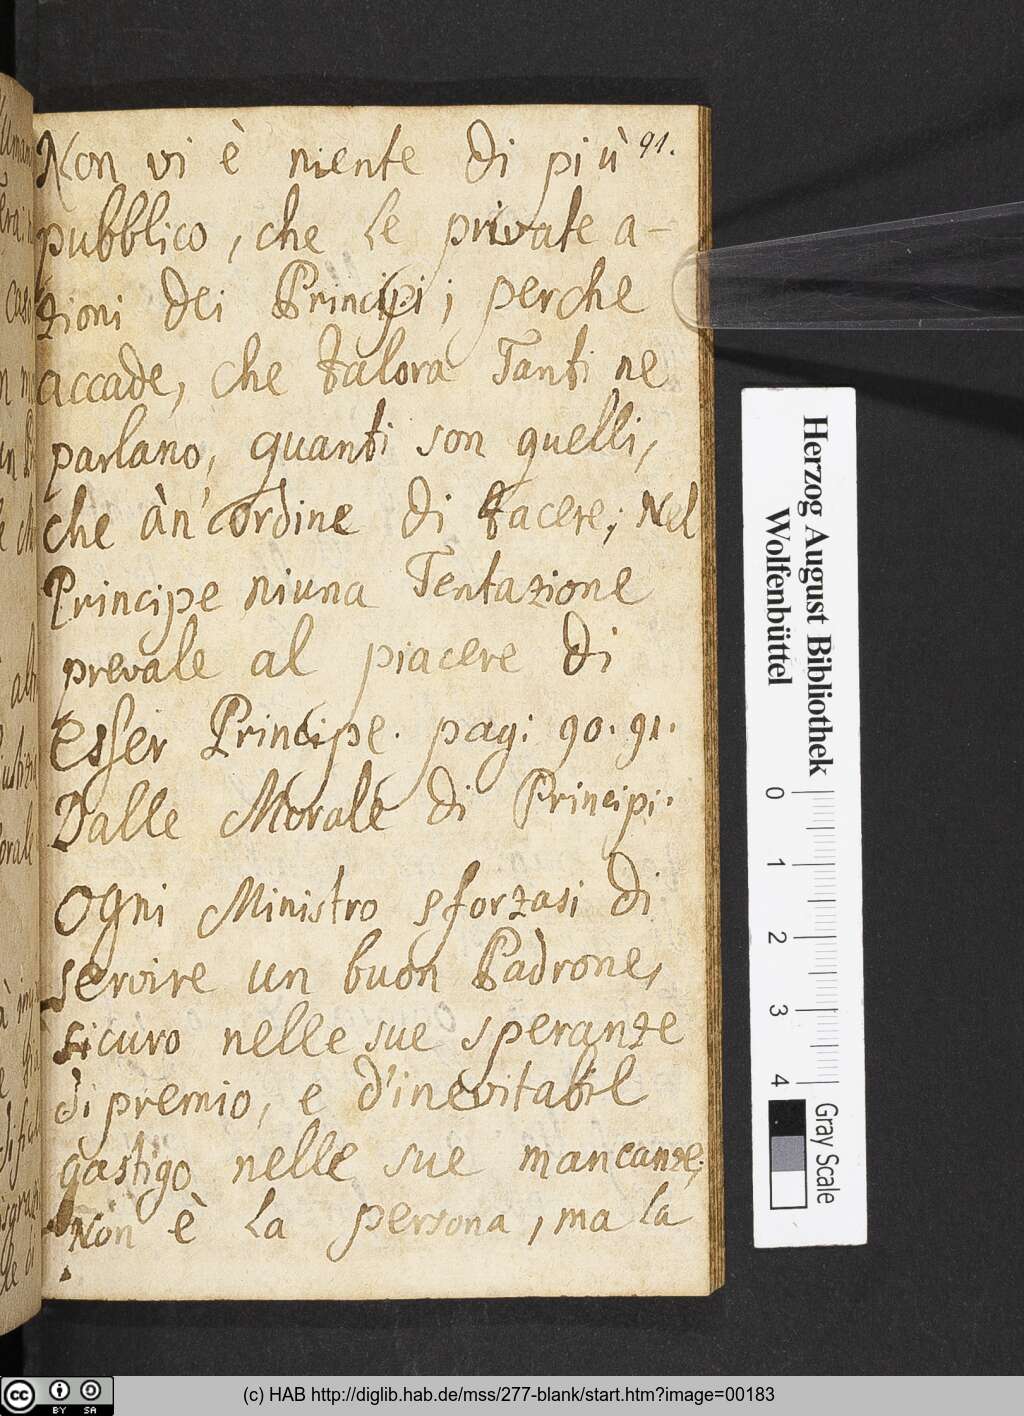 91.
Non vi è niente di più
pubblico, che le private a-
zioni dei Principi; perche
accade, che talora Tanti ne
parlano, quanti son quelli,
che àn' ordine di tacere; Nel
Principe niuna Tentazione
prevale al piacere di
Esser Principe. pag: 90. 91.
Dalle Morale di Principi.
Ogni Ministro sforzasi di
servire un buon Padrone,
sicuro nelle sue speranze
di premio, e d'inevitabil
gastigo nelle sue mancanze;
Non è la persona, ma la
Herzog August Bibliothek
Wolfenbüttel
0 1 2 3 4
Gray Scale
(c) HAB http://diglib.hab.de/mss/277-blank/start.htm?image=00183
cc BY SA